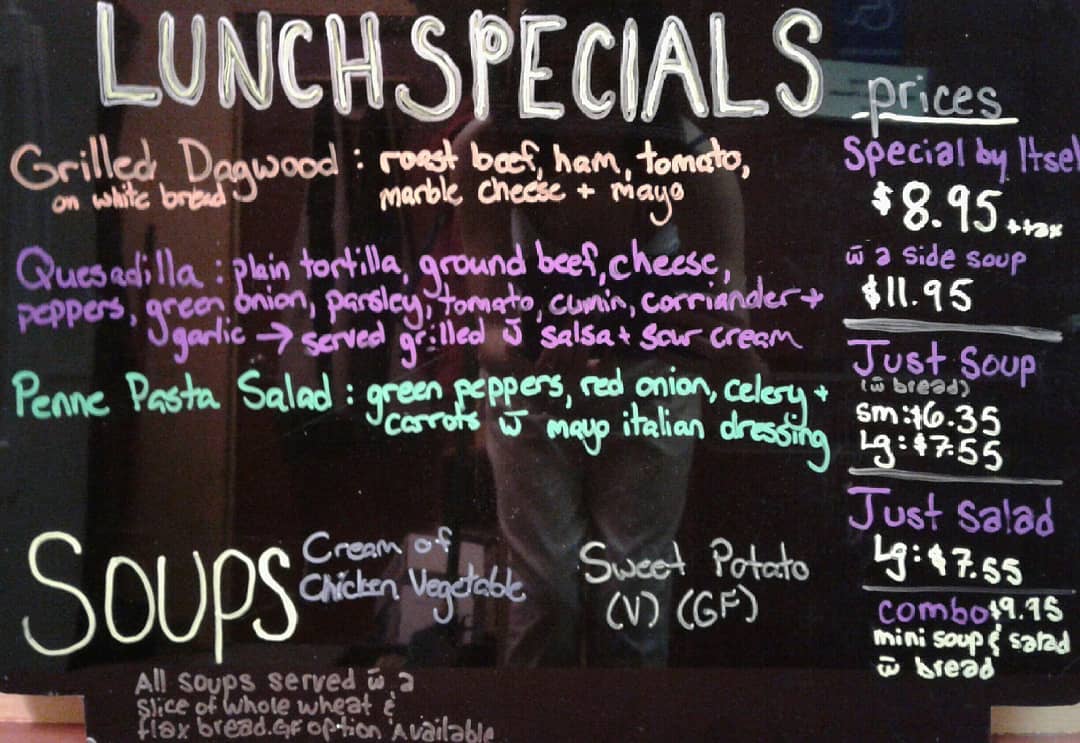 LUNCH SPECIALS
Grilled Dagwood : roast beef, ham, tomato,
on white bread marble cheese + mayo
Quesadilla : plain tortilla, ground beef, cheese,
peppers, green onion, parsley, tomato, cumin, corriander +
garlic → served grilled w̄ salsa + sour cream
Penne Pasta Salad : green peppers, red onion, celery +
carrots w̄ mayo italian dressing
Soups
Cream of
Chicken Vegetable
Sweet Potato
(V) (GF)
All soups served w̄ a
slice of whole wheat &
flax bread. GF option Available
prices
Special by Itsel
$8.95 + tax
w̄ a side soup
$11.95
Just Soup
(w̄ bread)
sm: $6.35
Lg: $7.55
Just Salad
Lg: $7.55
combo $9.95
mini soup & salad
w̄ bread